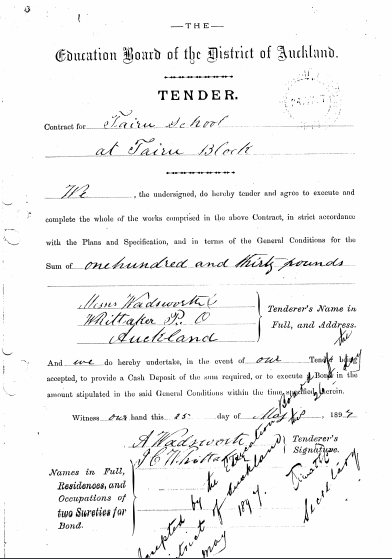 — THE —
Education Board of the District of Auckland.
TENDER.
Contract for Tairu School
at Tairu Block
We , the undersigned, do hereby tender and agree to execute and
complete the whole of the works comprised in the above Contract, in strict accordance
with the Plans and Specification, and in terms of the General Conditions for the
Sum of one hundred and thirty pounds
Messrs Wadsworth &
Whittaker P. O
Auckland
Tenderer's Name in
Full, and Address.
And we do hereby undertake, in the event of our Tender being
accepted, to provide a Cash Deposit of the sum required, or to execute a Bond in the
amount stipulated in the said General Conditions within the time specified herein.
Witness our hand this 25 day of May , 1897
A Wadsworth
J C Whittaker
Tenderer's
Signature.
Names in Full,
Residences, and
Occupations of
two Sureties for
Bond.
Accepted by the Education Board of the
District of Auckland
May 1897.
Secretary